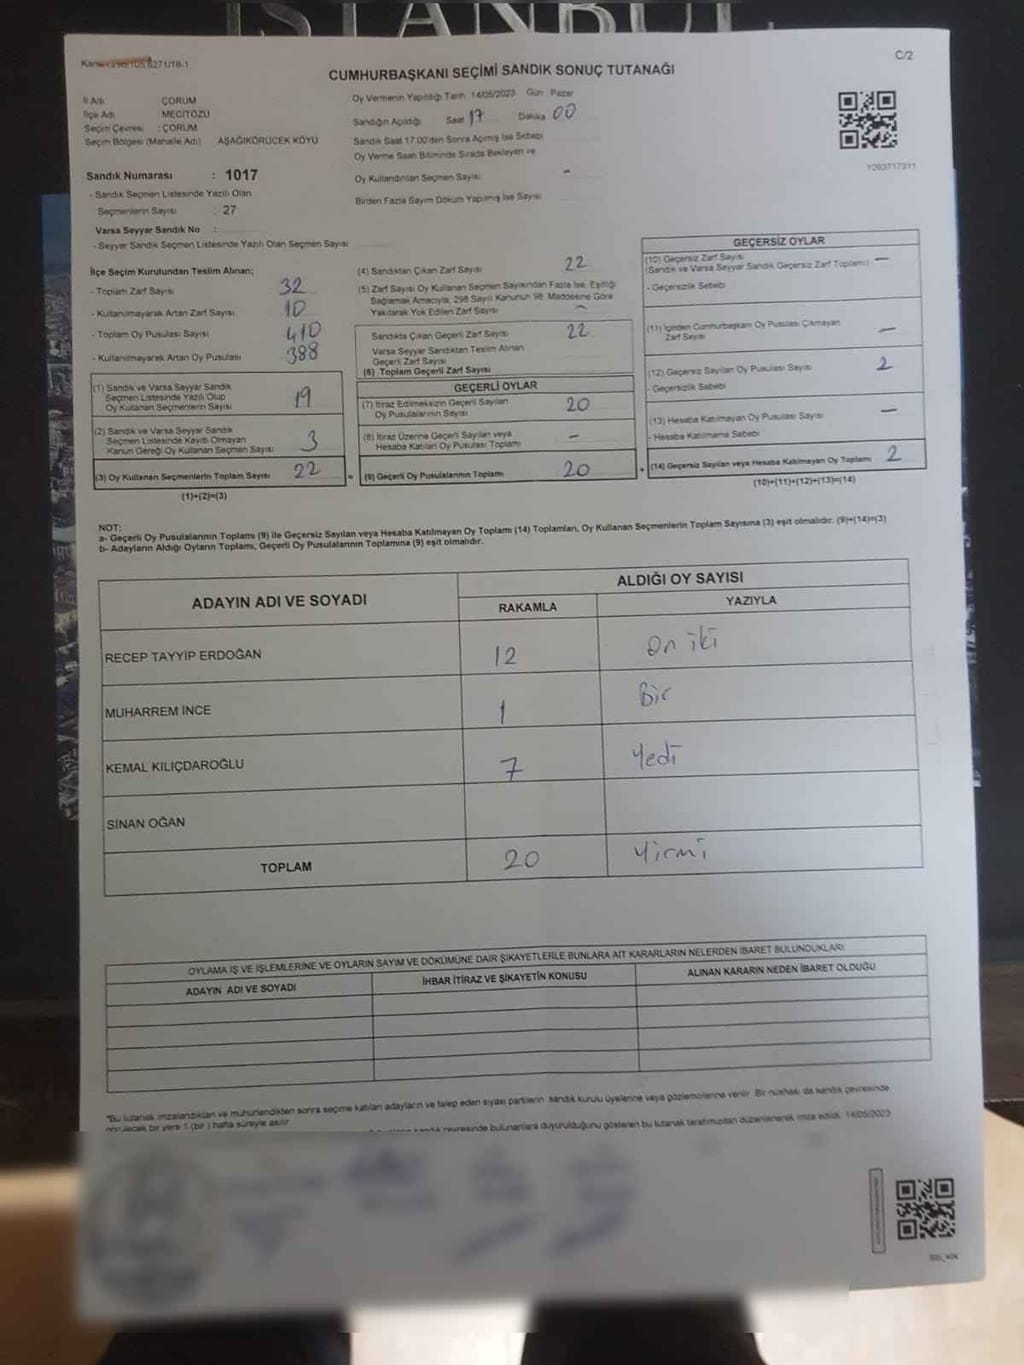 İSTANBUL
C/2
CUMHURBAŞKANI SEÇİMİ SANDIK SONUÇ TUTANAĞI
İl Adı : ÇORUM
İlçe Adı : MECİTÖZÜ
Seçim Çevresi : ÇORUM
Seçim Bölgesi (Mahalle Adı) AŞAĞIKÖRÜCEK KÖYÜ
Sandık Numarası : 1017
- Sandık Seçmen Listesinde Yazılı Olan
Seçmenlerin Sayısı : 27
Varsa Seyyar Sandık No :
- Seyyar Sandık Seçmen Listesinde Yazılı Olan Seçmen Sayısı
Oy Vermenin Yapıldığı Tarih 14/05/2023 Gün Pazar
Sandığın Açıldığı Saat 17 Dakika 00
Sandık Saat 17:00'den Sonra Açılmış İse Sebebi
Oy Verme Saati Bitiminde Sırada Bekleyen ve
Oy Kullandırılan Seçmen Sayısı -
Birden Fazla Sayım Döküm Yapılmış İse Sayısı
1093717311
İlçe Seçim Kurulundan Teslim Alınan;
- Toplam Zarf Sayısı 32
- Kullanılmayarak Artan Zarf Sayısı 10
- Toplam Oy Pusulası Sayısı 410
- Kullanılmayarak Artan Oy Pusulası 388
(1) Sandık ve Varsa Seyyar Sandık
Seçmen Listesinde Yazılı Olup
Oy Kullanan Seçmenlerin Sayısı 19
(2) Sandık ve Varsa Seyyar Sandık
Seçmen Listesinde Kayıtlı Olmayan
Kanun Gereği Oy Kullanan Seçmen Sayısı 3
(3) Oy Kullanan Seçmenlerin Toplam Sayısı 22
(1)+(2)=(3)
(4) Sandıktan Çıkan Zarf Sayısı 22
(5) Zarf Sayısı Oy Kullanan Seçmen Sayısından Fazla İse, Eşitliği
Sağlamak Amacıyla, 298 Sayılı Kanunun 98. Maddesine Göre
Yakılarak Yok Edilen Zarf Sayısı -
Sandıkta Çıkan Geçerli Zarf Sayısı 22
Varsa Seyyar Sandıktan Teslim Alınan
Geçerli Zarf Sayısı
(6) Toplam Geçerli Zarf Sayısı
GEÇERLİ OYLAR
(7) İtiraz Edilmeksizin Geçerli Sayılan
Oy Pusulalarının Sayısı 20
(8) İtiraz Üzerine Geçerli Sayılan veya
Hesaba Katılan Oy Pusulası Toplamı -
= (9) Geçerli Oy Pusulalarının Toplamı 20
GEÇERSİZ OYLAR
(10) Geçersiz Zarf Sayısı -
(Sandık ve Varsa Seyyar Sandık Geçersiz Zarf Toplamı)
- Geçersizlik Sebebi
(11) İçinden Cumhurbaşkanı Oy Pusulası Çıkmayan
Zarf Sayısı -
(12) Geçersiz Sayılan Oy Pusulası Sayısı 2
- Geçersizlik Sebebi
(13) Hesaba Katılmayan Oy Pusulası Sayısı -
- Hesaba Katılmama Sebebi
+ (14) Geçersiz Sayılan veya Hesaba Katılmayan Oy Toplamı 2
(10)+(11)+(12)+(13)=(14)
NOT:
a- Geçerli Oy Pusulalarının Toplamı (9) ile Geçersiz Sayılan veya Hesaba Katılmayan Oy Toplamı (14) Toplamları, Oy Kullanan Seçmenlerin Toplam Sayısına (3) eşit olmalıdır. (9)+(14)=(3)
b- Adayların Aldığı Oyların Toplamı, Geçerli Oy Pusulalarının Toplamına (9) eşit olmalıdır.
ADAYIN ADI VE SOYADI
ALDIĞI OY SAYISI
RAKAMLA YAZIYLA
RECEP TAYYİP ERDOĞAN 12 on iki
MUHARREM İNCE 1 Bir
KEMAL KILIÇDAROĞLU 7 Yedi
SİNAN OĞAN
TOPLAM 20 Yirmi
OYLAMA İŞ VE İŞLEMLERİNE VE OYLARIN SAYIM VE DÖKÜMÜNE DAİR ŞİKAYETLERLE BUNLARA AİT KARARLARIN NELERDEN İBARET BULUNDUKLARI
ADAYIN ADI VE SOYADI İHBAR İTİRAZ VE ŞİKAYETİN KONUSU ALINAN KARARIN NEDEN İBARET OLDUĞU
*Bu tutanak imzalandıktan ve mühürlendikten sonra seçime katılan adayların ve talep eden siyasi partilerin sandık kurulu üyelerine veya gözlemcilerine verilir. Bir nüshası da sandık çevresinde
görülecek bir yere 1 (bir) hafta süreyle asılır.
sandık çevresinde bulunanlara duyurulduğunu gösteren bu tutanak tarafımızdan düzenlenerek imza edildi. 14/05/2023